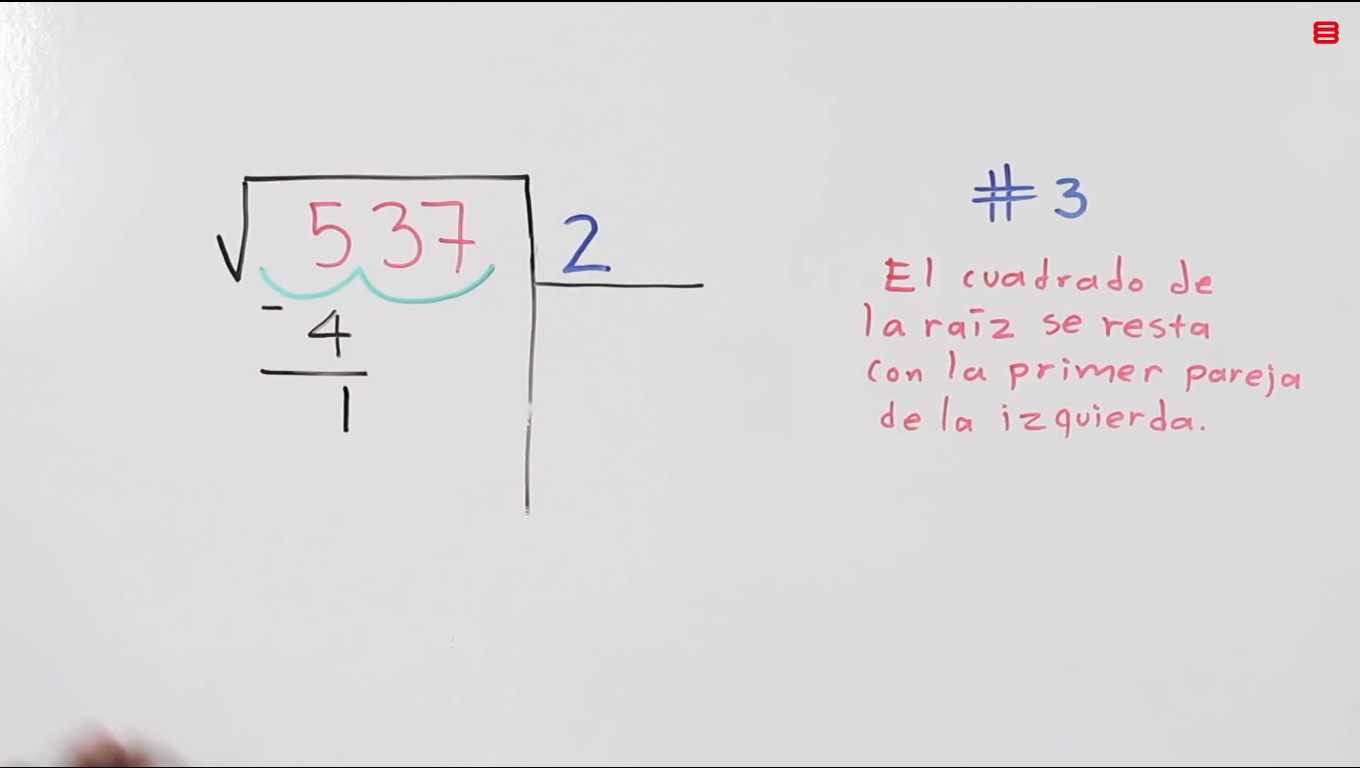 √537 2
- 4
1
# 3
El cuadrado de
la raíz se resta
con la primer pareja
de la izquierda.